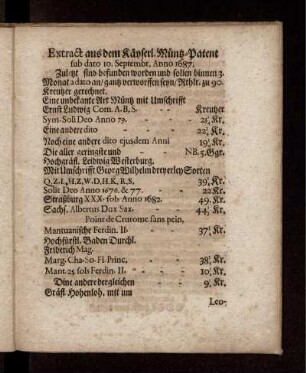 Extract aus dem Käyserl. Müntz-Patent
sub dato 10. Septembr. Anno 1687.
Zuletzt sind befunden worden und sollen binnen 3.
Monat a dato an/ gantz verworffen seyn/ Rthlr. zu 90.
Kreutzer gerechnet.
Eine unbekante Art Müntz mit Umschrifft
Ernst Ludwig Com. A. B. S. - Kreutzer
Sym. Soli Deo Anno 79. - - 21. Kr.
Eine andere dito - - 22. Kr.
Noch eine andere dito ejusdem Anni 19. Kr.
Die aller geringste und - - NB. 5. Ggr.
Hochgräfl. Leidwig Westerburg.
Mit Umschrifft Georg Wilhelm dreyerley Sorten
Q. Z. L. H. Z. W. D. H. K. R. S. 39. Kr.
Soli Deo Anno 1676. & 77. - 22. Kr.
Straßburg XXX. sols Anno 1682. 49. Kr.
Sachs. Albertus Dux Sax. - 44. Kr.
Point de Crutome sans pein.
Mantuanische Ferdin. II. - 37. Kr.
Hochfürstl. Baden Durchl.
Friderich Mag.
Marg. Cha-So-Fi-Princ. - 38. Kr.
Mant. 25 sols Ferdin. II. - - 10. Kr.
Dine andere dergleichen - 9. Kr.
Gräfl. Hohenloh. mit um
Leo-